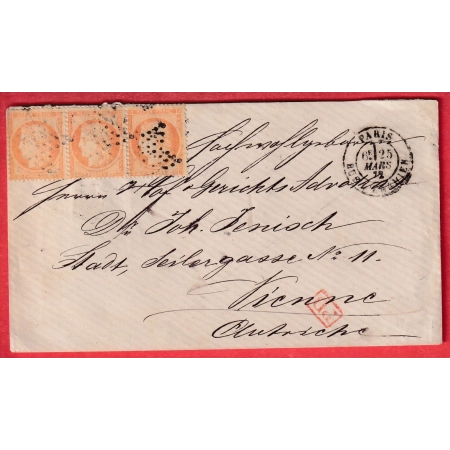 PARIS
6E 25
MARS
72
Hochwohlgeboren
Herrn Hof & Gerichts Advokat
Dr. Joh. Jenisch
Stadt, Seilergasse No. 11.
Vienne
Autriche
PD